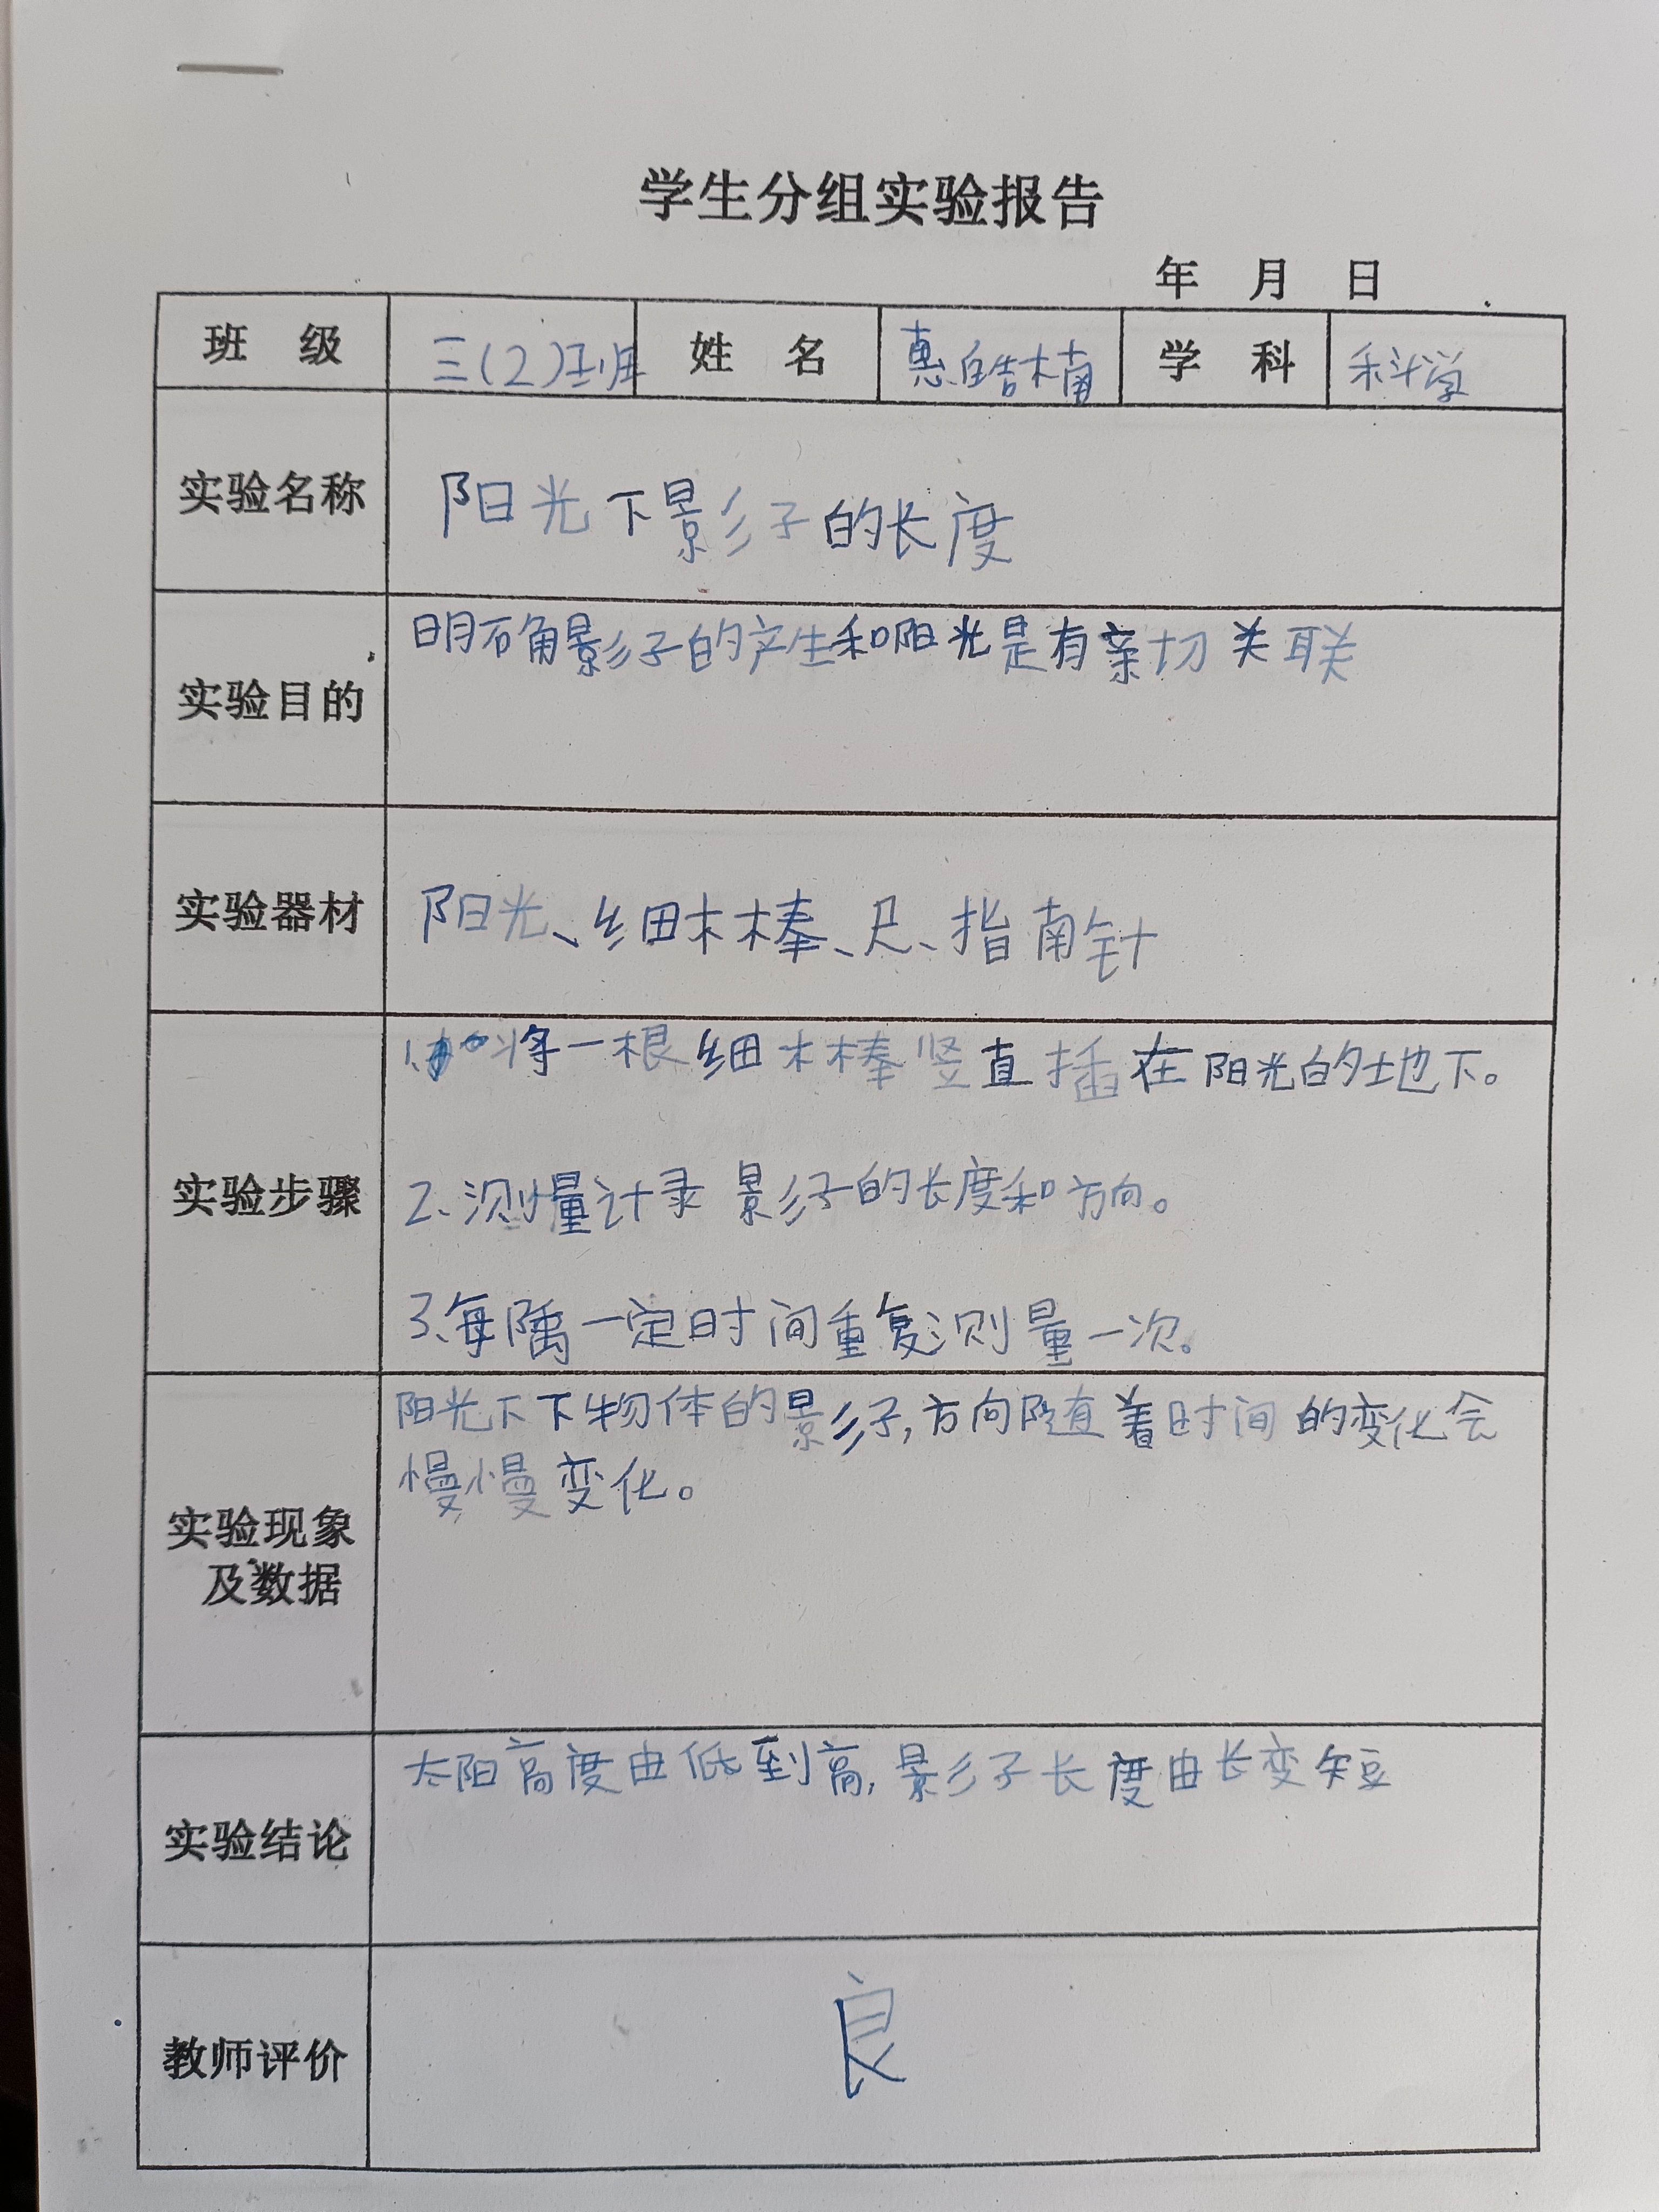 学生分组实验报告
年 月 日
班 级 三(2)班 姓 名 惠皓楠 学 科 科学
实验名称 阳光下影子的长度
实验目的 明确影子的产生和阳光是有亲切关联
实验器材 阳光、细木棒、尺、指南针
实验步骤 1.将一根细木棒竖直插在阳光的地下。
2、测量计录影子的长度和方向。
3、每隔一定时间重复测量一次。
实验现象及数据 阳光下下物体的影子,方向随着时间的变化会
慢慢变化。
实验结论 太阳高度由低到高,影子长度由长变短
教师评价 良